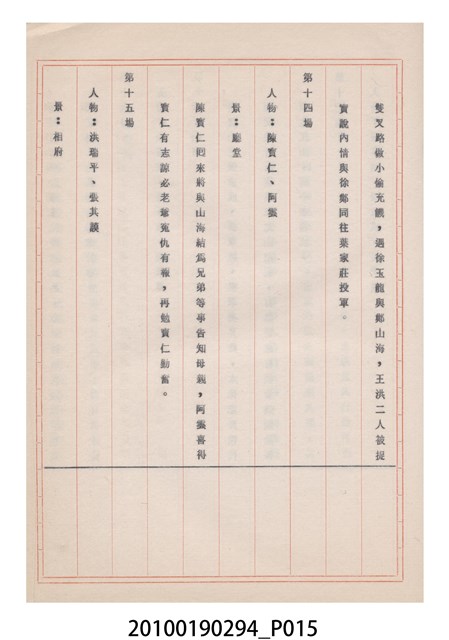 雙叉路做小偷充饑，遇徐玉龍與鄭山海，王洪二人被捉
實說內情與徐鄭同往葉家莊投軍。
第十四場
人物：陳寶仁、阿雲
景：廳堂
陳寶仁回來將與山海結爲兄弟等事告知母親，阿雲喜得
寶仁有志諒必老爺冤仇有報，再勉寶仁勤奮。
第十五場
人物：洪瑞平、張其談
景：相府
20100190294_P015